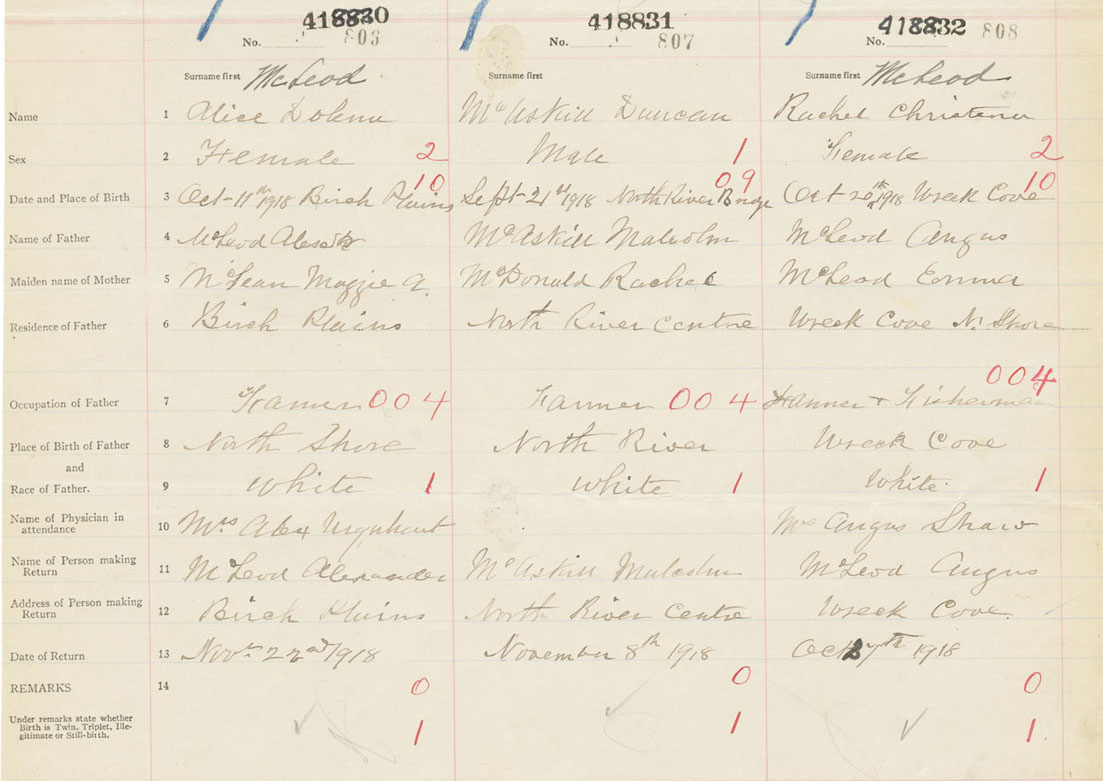 418830 418831 418832
No. 803 No. 807 No. 808
Surname first McLeod Surname first Surname first McLeod
Name 1 Alice Dolena McAskill Duncan Rachel Christena
Sex 2 Female 2 Male 1 Female 2
10 09 10
Date and Place of Birth 3 Oct-11th 1918 Birch Plains Sept-21st 1918 North River Bridge Oct 20th 1918 Wreck Cove
Name of Father 4 McLeod McAskill Malcolm McLeod Angus
Maiden name of Mother 5 McLean Maggie A. McDonald Rachel McLeod Emma
Residence of Father 6 Birch Plains North River Centre Wreck Cove N. Shore
004
Occupation of Father 7 Farmer 004 Farmer 004 Farmer + Fisherman
Place of Birth of Father 8 North Shore North River Wreck Cove
and
Race of Father. 9 White 1 White 1 White 1
Name of Physician in
attendance 10 Mrs Alex Urquhart Mrs Angus Shaw
Name of Person making
Return 11 McLeod Alexander McAskill Malcolm McLeod Angus
Address of Person making
Return 12 Birch Plains North River Centre Wreck Cove
Date of Return 13 Novr 22nd 1918 November 8th 1918 7th 1918
REMARKS 14 0 0 0
Under remarks state whether
Birth is Twin, Triplet, Ille-
gitimate or Still-birth. 1 1 1